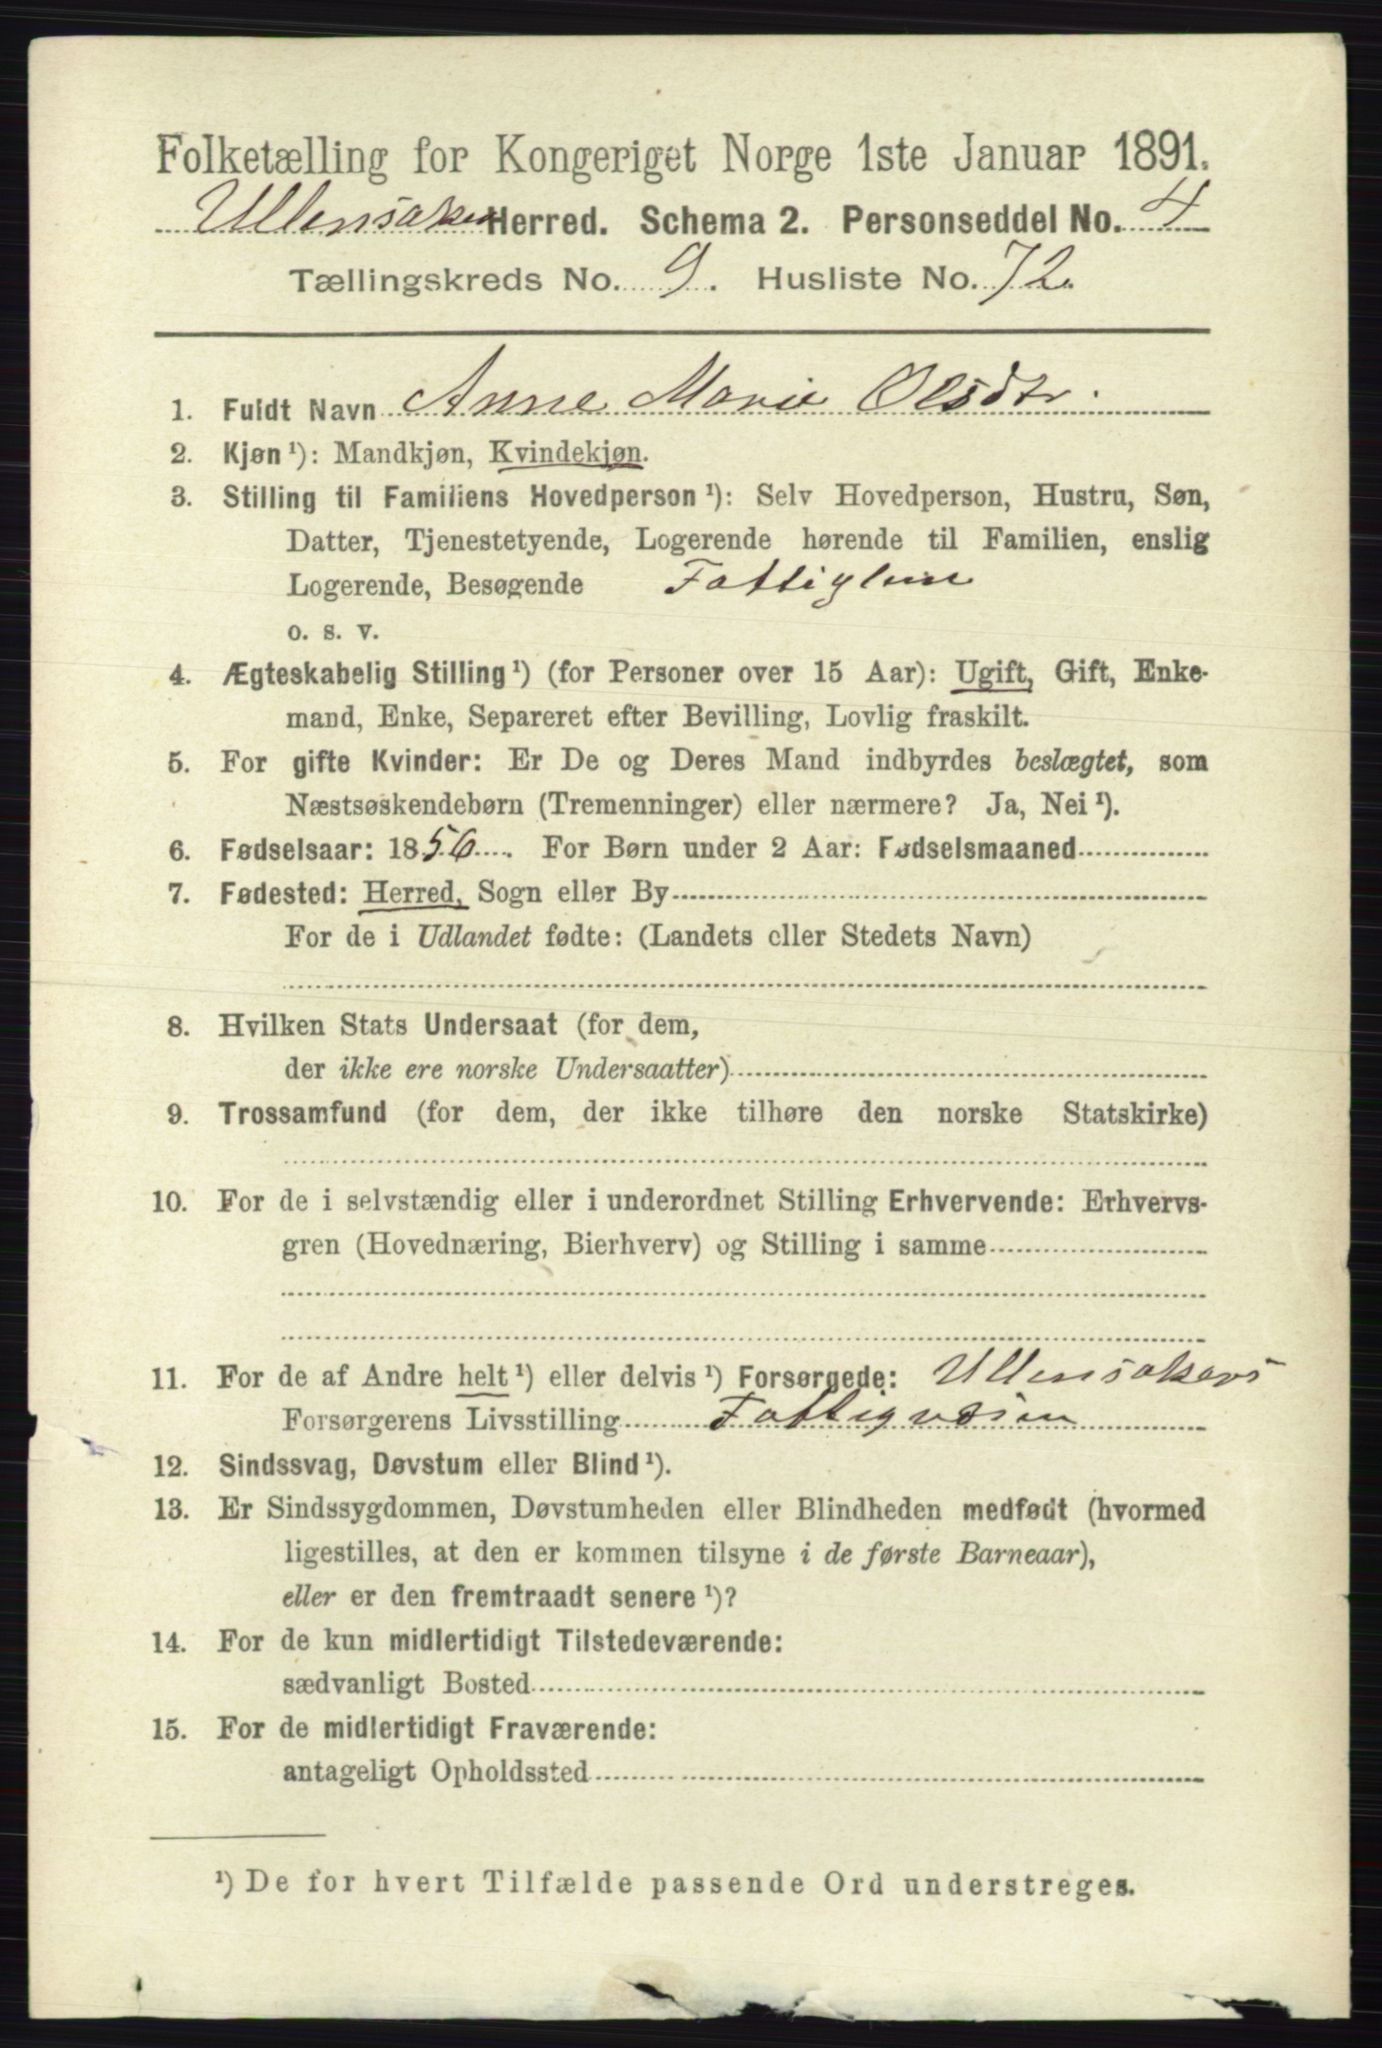 Folketælling for Kongeriget Norge 1ste Januar 1891.
Ullensaker Herred. Schema 2. Personseddel No. 4
Tællingskreds No. 9. Husliste No. 72.
1. Fuldt Navn Anne Marie Olsdtr.
2. Kjøn ¹): Mandkjøn, Kvindekjøn.
3. Stilling til Familiens Hovedperson ¹): Selv Hovedperson, Hustru, Søn,
Datter, Tjenestetyende, Logerende hørende til Familien, enslig
Logerende, Besøgende Fattiglem
o. s. v.
4. Ægteskabelig Stilling ¹) (for Personer over 15 Aar): Ugift, Gift, Enke-
mand, Enke, Separeret efter Bevilling, Lovlig fraskilt.
5. For gifte Kvinder: Er De og Deres Mand indbyrdes beslægtet, som
Næstsøskendebørn (Tremenninger) eller nærmere? Ja, Nei ¹).
6. Fødselsaar: 1856. For Børn under 2 Aar: Fødselsmaaned
7. Fødested: Herred, Sogn eller By
For de i Udlandet fødte: (Landets eller Stedets Navn)
8. Hvilken Stats Undersaat (for dem,
der ikke ere norske Undersaatter)
9. Trossamfund (for dem, der ikke tilhøre den norske Statskirke)
10. For de i selvstændig eller i underordnet Stilling Erhvervende: Erhvervs-
gren (Hovednæring, Bierhverv) og Stilling i samme
11. For de af Andre helt ¹) eller delvis ¹) Forsørgede: Ullensakers
Forsørgerens Livsstilling Fattigvæsen
12. Sindssvag, Døvstum eller Blind ¹).
13. Er Sindssygdommen, Døvstumheden eller Blindheden medfødt (hvormed
ligestilles, at den er kommen tilsyne i de første Barneaar),
eller er den fremtraadt senere ¹)?
14. For de kun midlertidigt Tilstedeværende:
sædvanligt Bosted
15. For de midlertidigt Fraværende:
antageligt Opholdssted
¹) De for hvert Tilfælde passende Ord understreges.